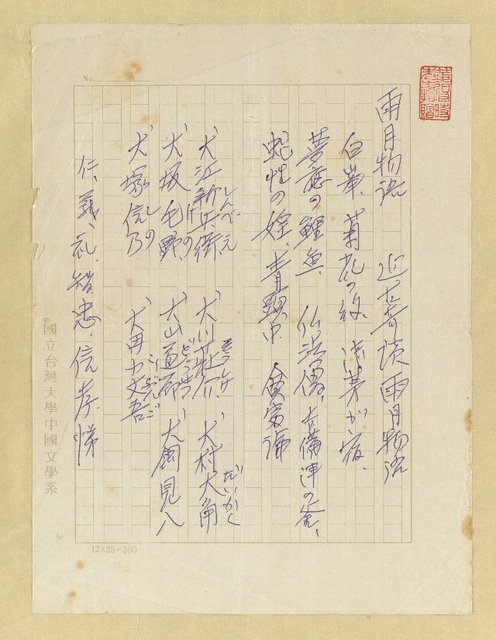 No.
雨月物語　近古奇談雨月物語
白峯、菊花の約、浅茅が宿、
夢應の鯉魚、仏法僧、吉備津の釜、
蛇性の婬、青頭巾　貧富論
しんべえ　だいかく
犬江新兵衛　犬川荘介　犬村大角
けの　どうせつ
犬坂毛野　犬山道節　犬飼見八
しの　こぶんご
犬塚信乃　犬田小文吾
仁、義、礼、智、忠、信、孝、悌
國立台灣大學中國文學系
12×25=300